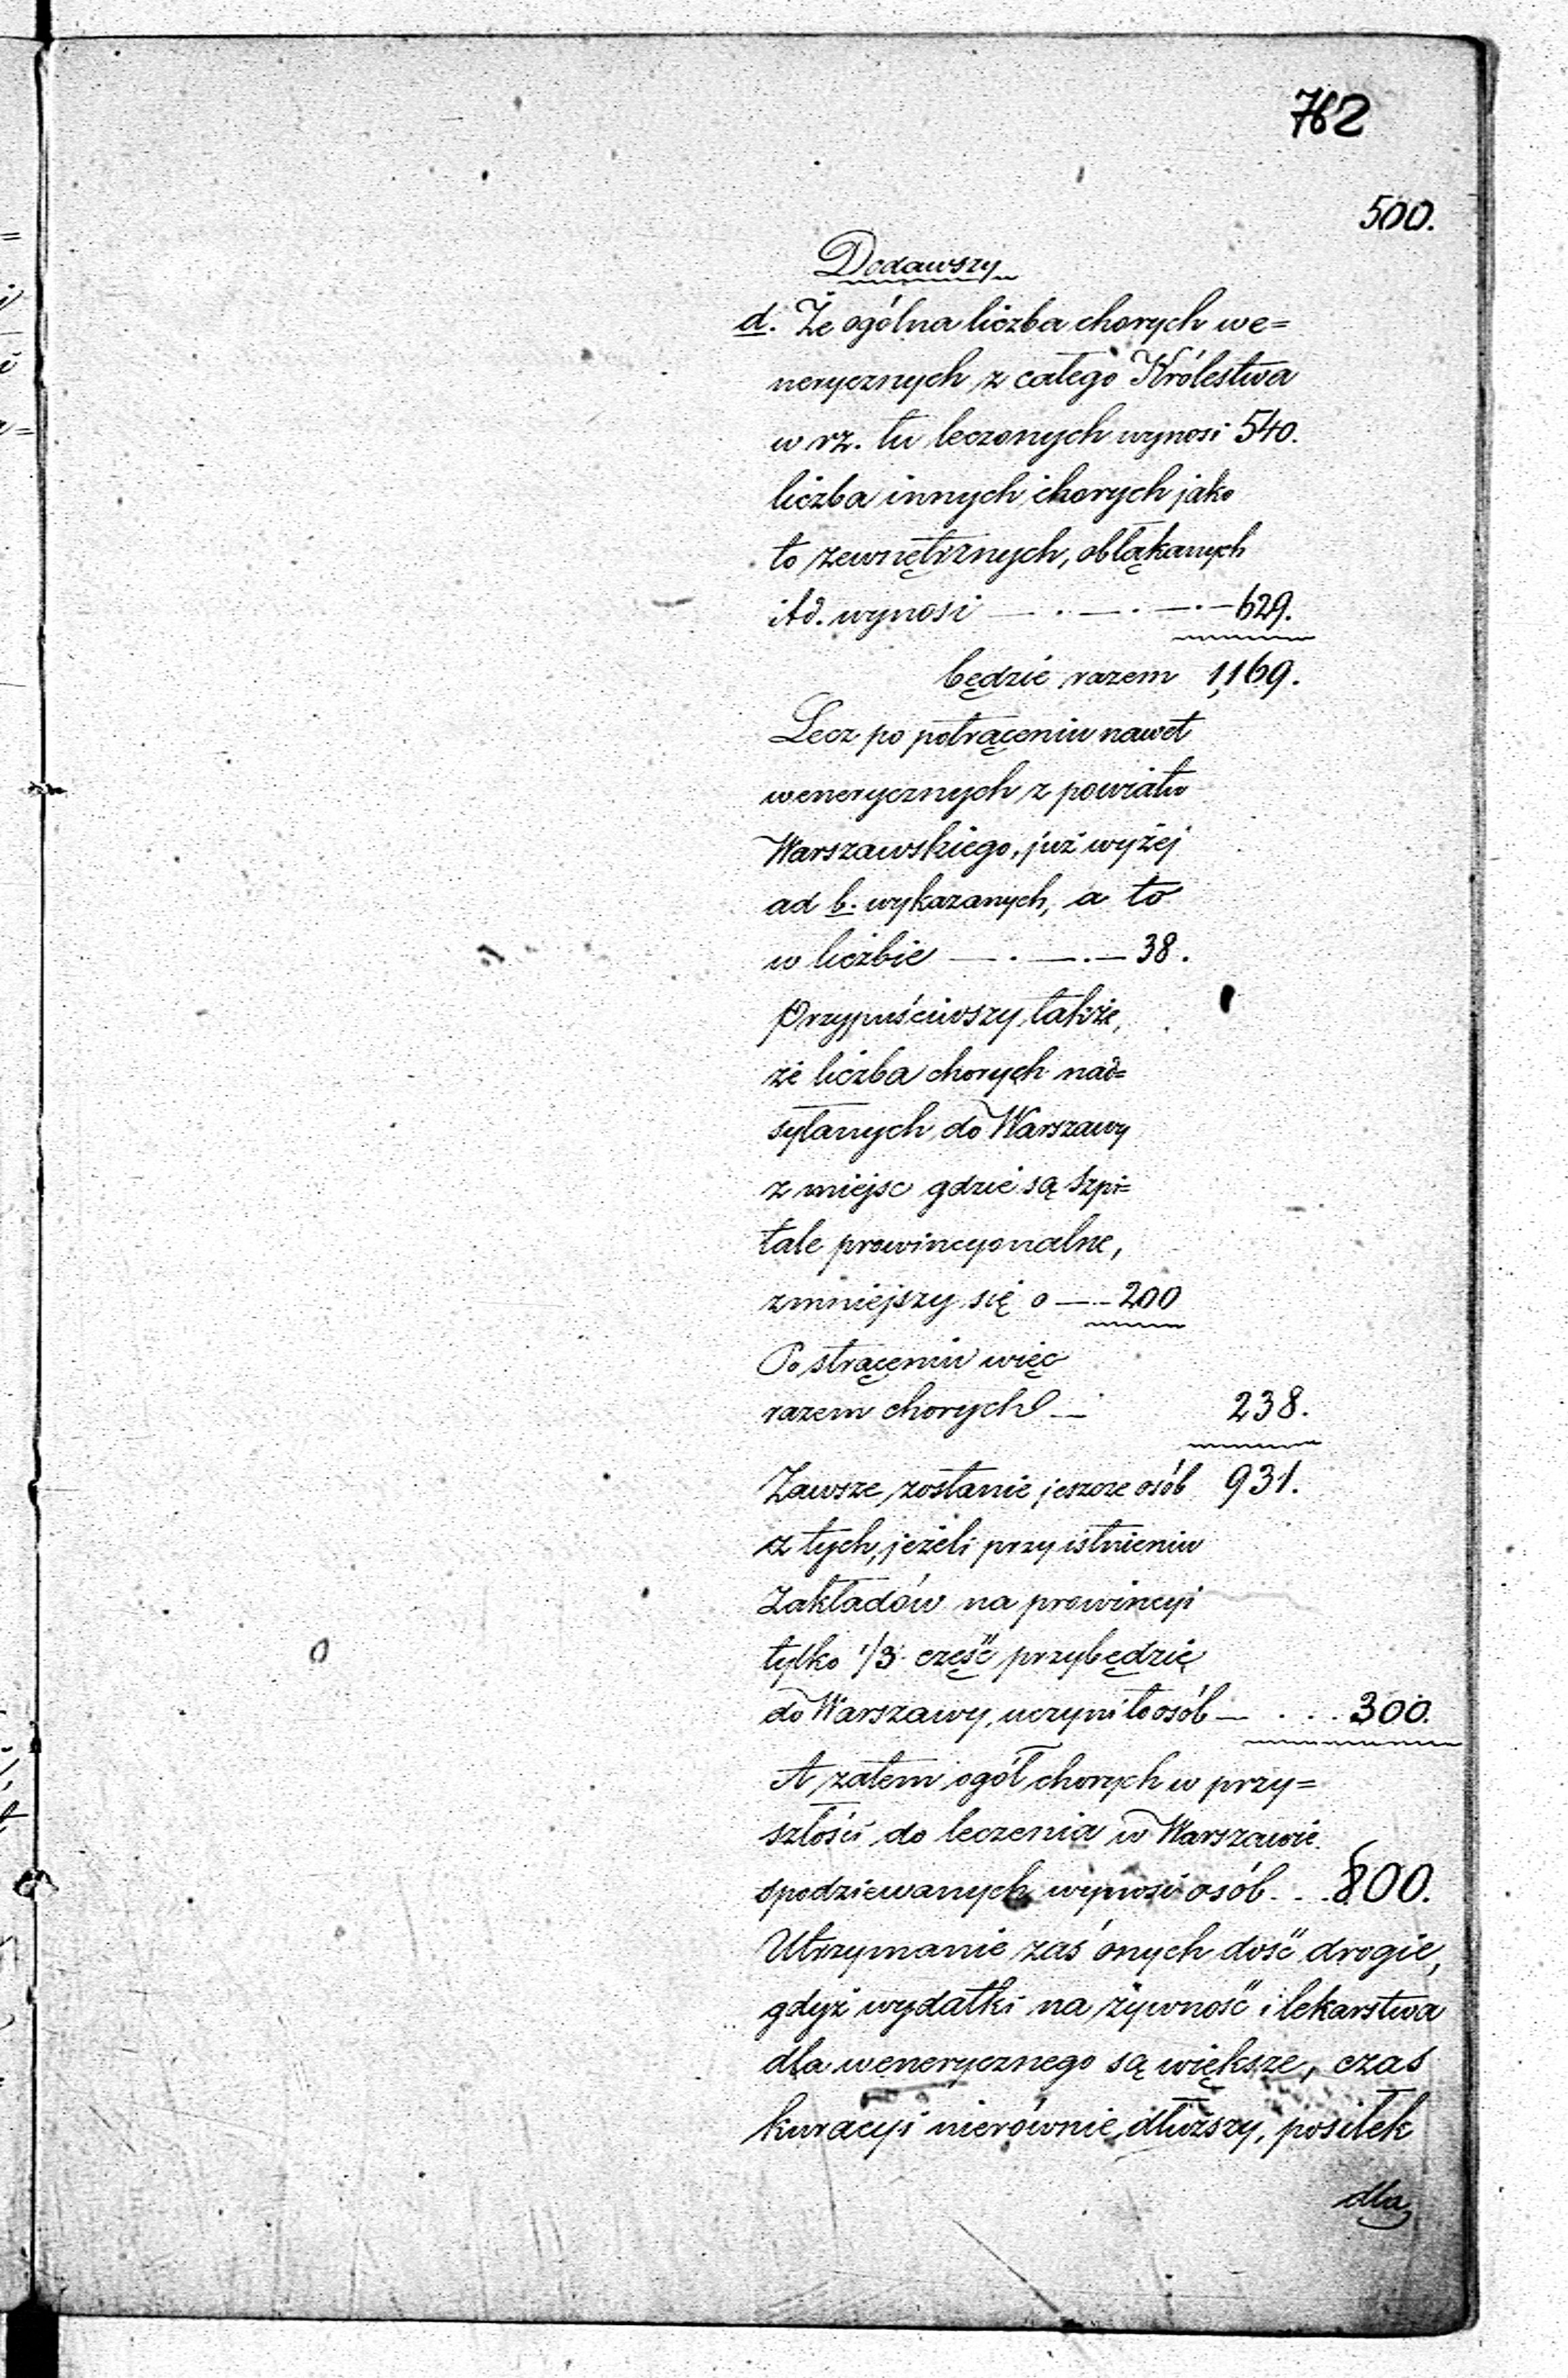 762
500.
Dodawszy
d. Że ogólna liczba chorych we=
nerycznych z całego Królestwa
w rz. tu leczonych wynosi 540.
liczba innych chorych jako
to zewnętrznych, obłąkanych
itd. wynosi — . — . — . — 629.
będzie razem 1,169.
Lecz po potrąceniu nawet
wenerycznych z powiatu
Warszawskiego, już wyżej
ad b. wykazanych, a to
w liczbie — . — . — 38.
Przypuściwszy także,
że liczba chorych nad=
syłanych do Warszawy
z miejsc gdzie są szpi=
tale prowincyonalne,
zmniejszy się o — . — 200
Po strąceniu więc
razem chorych — . 238.
Zawsze zostanie jeszcze osób 931.
z tych, jeżeli przy istnieniu
Zakładów na prowincyi
tylko 1/3 część przybędzie
do Warszawy, uczyni to osób — . . . 300.
A zatem ogół chorych w przy=
szłości do leczenia w Warszawie
spodziewanych wynosi osób . . . 800.
Utrzymanie zaś onych dość drogie,
gdyż wydatki na żywność i lekarstwa
dla wenerycznego są większe, czas
kuracyi nierównie dłuższy, posiłek
dla